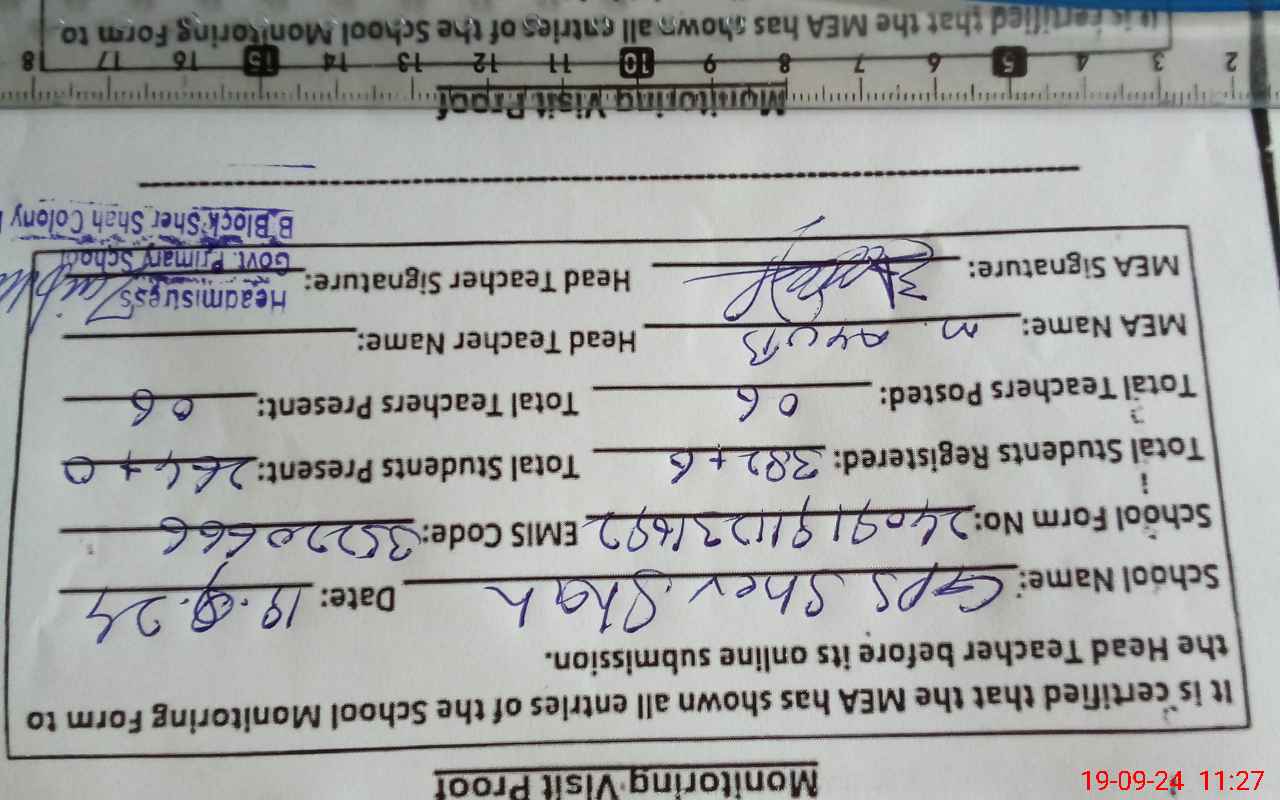 Monitoring Visit Proof
It is certified that the MEA has shown all entries of the School Monitoring Form to
the Head Teacher before its online submission.
School Name: GPS Sher Shah Date: 19.9.24
School Form No: EMIS Code: 35220666
Total Students Registered: 382+6 Total Students Present: 264+0
Total Teachers Posted: 06 Total Teachers Present: 06
MEA Name: M. Ayub Head Teacher Name:
MEA Signature: Head Teacher Signature:
Headmistress
Govt. Primary School
B Block Sher Shah Colony
Monitoring Visit Proof
2 3 4 5 6 7 8 9 10 11 12 13 14 15 16 17 18
It is certified that the MEA has shown all entries of the School Monitoring Form to
19-09-24 11:27